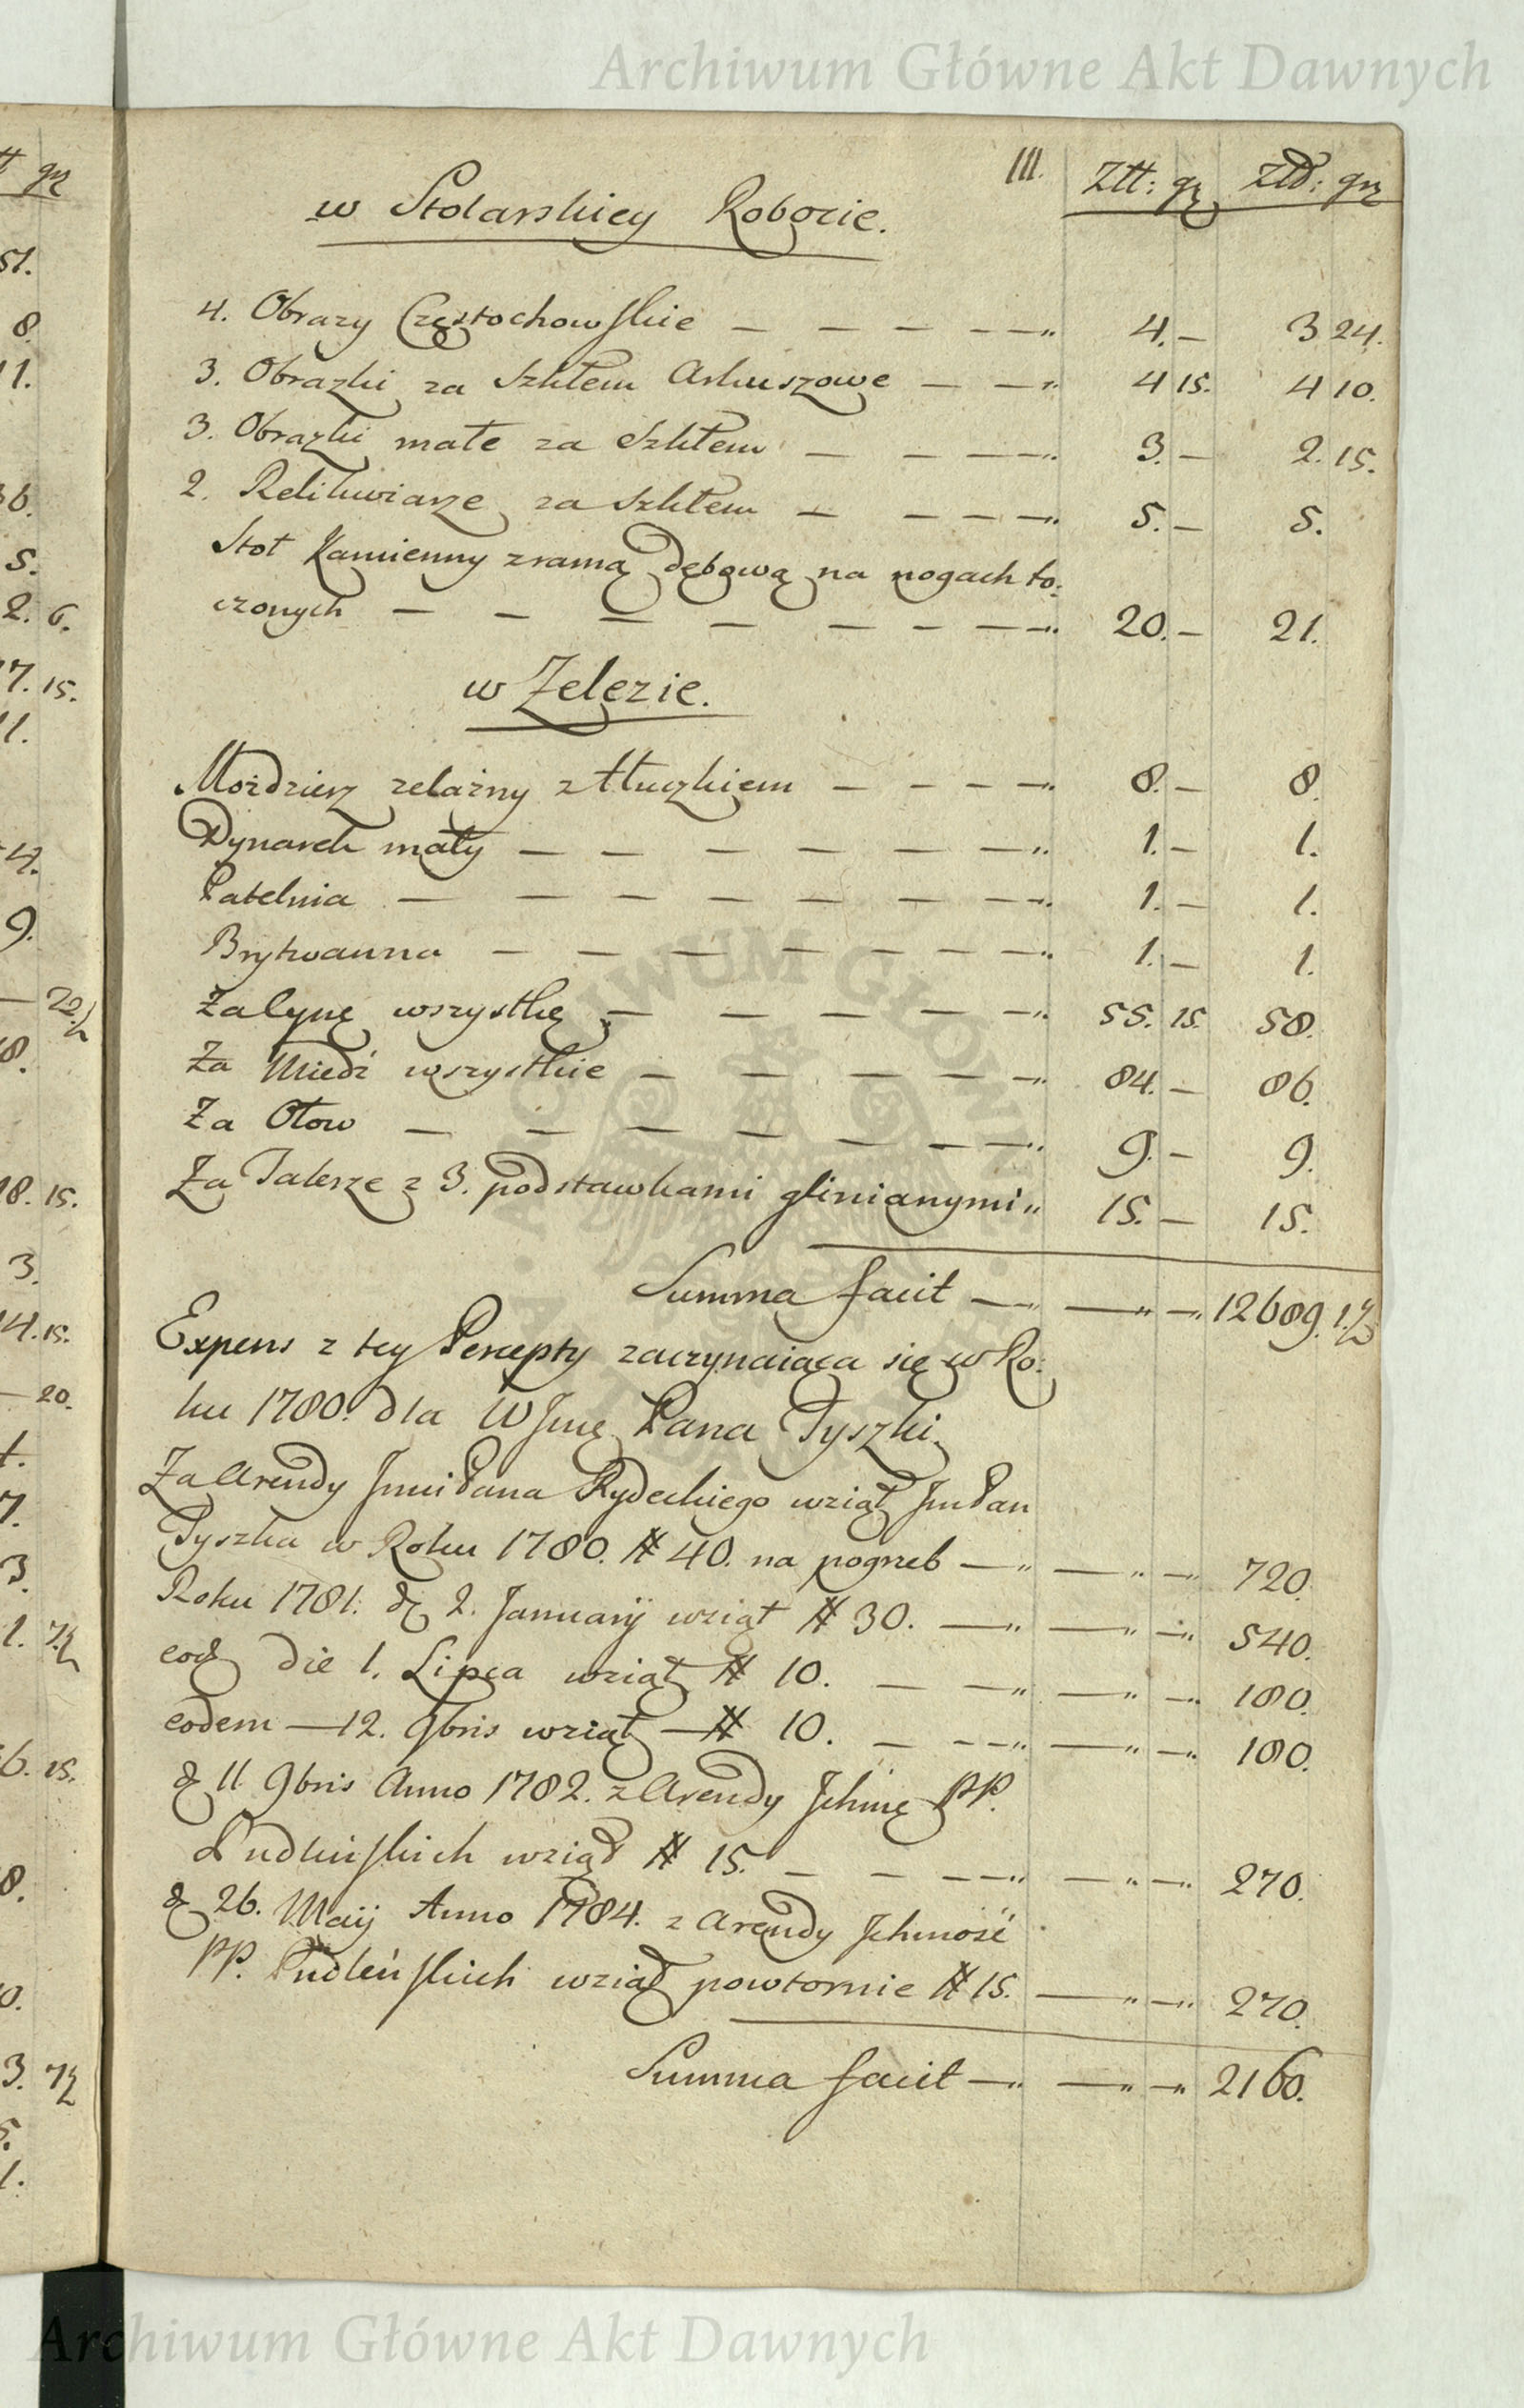 Archiwum Główne Akt Dawnych
111. Złł: gr Złł: gr
w Stolarskiey Robocie.
4. Obrazy Częstochowskie — — — — — 4. — 3 24.
3. Obrazki za Szkłem Arkuszowe — — 4 15. 4 10.
3. Obrazki małe za Szkłem — — — — 3. — 2. 15.
2. Relikwiarze za Szkłem — — — — 5. — 5.
Stoł Kamienny z ramą dębową na nogach to:
czonych — — — — — — — — 20. — 21.
w Zelezie.
Możdzierz zelazny z tłuczkiem — — — — 8. — 8.
Dynarek mały — — — — — — — 1. — 1.
Patelnia — — — — — — — — 1. — 1.
Brytwanna — — — — — — — 1. — 1.
Za Cynę wszystkę — — — — — 55. 15. 58.
Za Miedź wszystkie — — — — — 84. — 86.
Za Ołow — — — — — — — 9. — 9.
Za Talerze z 3. podstawkami glinianymi 15. — 15.
Summa facit — — — 12689. 1.½
Expens z tey Percepty zaczynaiąca się w Ro:
ku 1780. dla WJmę Pana Tyszki.
Za Arendy Jmći Pana Rydeckiego wziął Jm Pan
Tyszka w Roku 1780. # 40. na pogrzeb — — — 720.
Roku 1781. d 2. Januarij wziął # 30. — — — 540.
eod die 1. Lipca wziął # 10. — — — — 180.
eodem — 12. 9bris wziął — # 10. — — — — — 180.
d 11 9bris Anno 1782. z Arendy Jchmę PP.
wziął # 15. — — — — — — 270.
d 26. Maij Anno 1784. z Arendy Jchmość
PP. wziął powtornie # 15. — — 270.
Summa facit — — — 2160.
Archiwum Główne Akt Dawnych